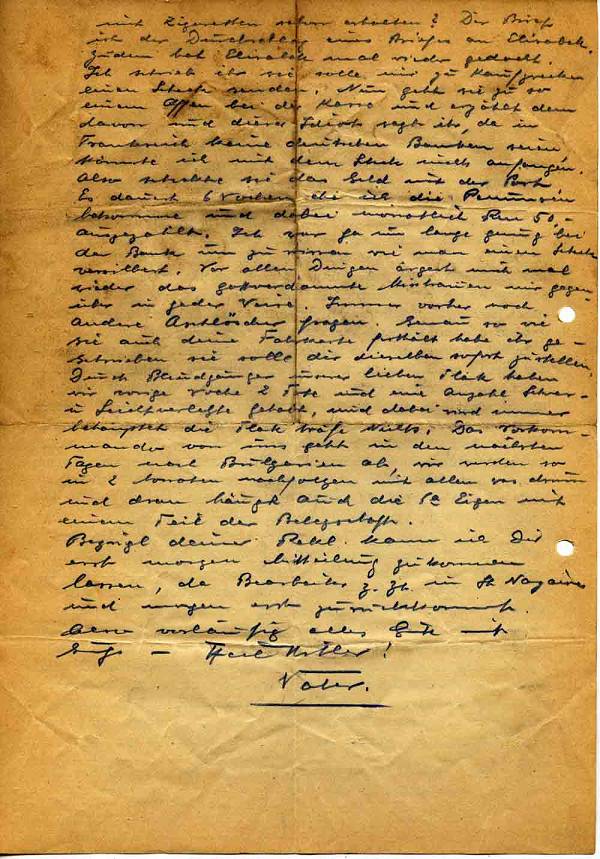 mit Zigaretten schon erhalten? Der Brief
ist der Durchschlag eines Briefes an Elisabeth.
Zudem hat Elisabeth mal wieder gedacht.
Ich schrieb ihr sie solle mir zu
einen Scheck senden. Nun geht sie zu so
einem Affen bei der Kasse und erzählt dem
davon und dieser Idiot sagt ihr, da in
Frankreich keine deutschen Banken seien
könnte ich mit dem Scheck nichts anfangen.
Also schickte sie das Geld mit der Post
Es dauert 6 Wochen ehe ich die
bekomme und dabei monatlich 50,-
ausgezahlt. Ich war ja nun lange genug bei
der Bank um zu wissen wie man einen Scheck
versilbert. Vor allen Dingen ärgert mich mal
wieder das gottverdammte Misstrauen mir gegen-
über in jeder Weise. Immer vorher noch
andere Arschlöcher fragen. Genau so wie
sie auch deine habe ihr ge-
schrieben sie solle dir dieselben sofort zustellen.
Durch Blindgänger unserer lieben Flak haben
wir vorige Woche 2 Tote und eine Anzahl Schwer-
u Leichtverletzte gehabt, und dabei wird immer
behauptet die Flak träfe nichts. Das Vorkom-
mando von uns geht in den nächsten
Tagen nach Bulgarien ab, wir werden so
in 2 Monaten nachfolgen mit allem was drum
und dran hängt auch die Fa Eigen mit
einem Teil der Belegschaft.
Bezügl deiner Rekl. kann ich Dir
erst morgen Mitteilung zukommen
lassen, da Bearbeiter z. Zt. in St Nazaire
und morgen erst zurückkommt.
vorläufig alles Gute mit
Heil Hitler!
Vater.